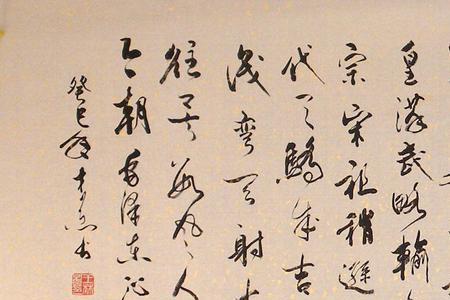 皇漢武略輸
宗宋祖稍遜
代天驕成吉
識彎弓射
往矣數風流人
今朝毛澤東詞
癸巳年